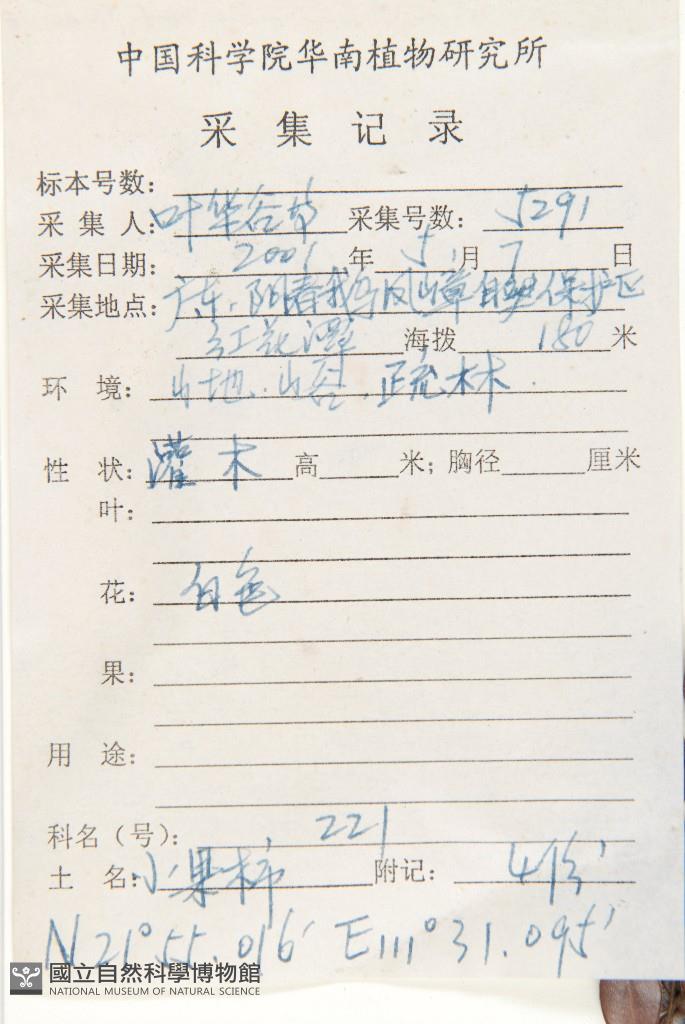 中国科学院华南植物研究所
采集记录
标本号数：
采集人：叶华谷等 采集号数：5291
采集日期：2001年5月7日
采集地点：广东·阳春鹅凰嶂自然保护区
红花潭 海拨180米
环境：山地·山谷·疏林
性状：灌木 高 米；胸径 厘米
叶：
花：白色
果：
用途：
科名（号）：221
土名：小果柿 附记：4份
N21°55.016′ E111°31.095′
國立自然科學博物館
NATIONAL MUSEUM OF NATURAL SCIENCE